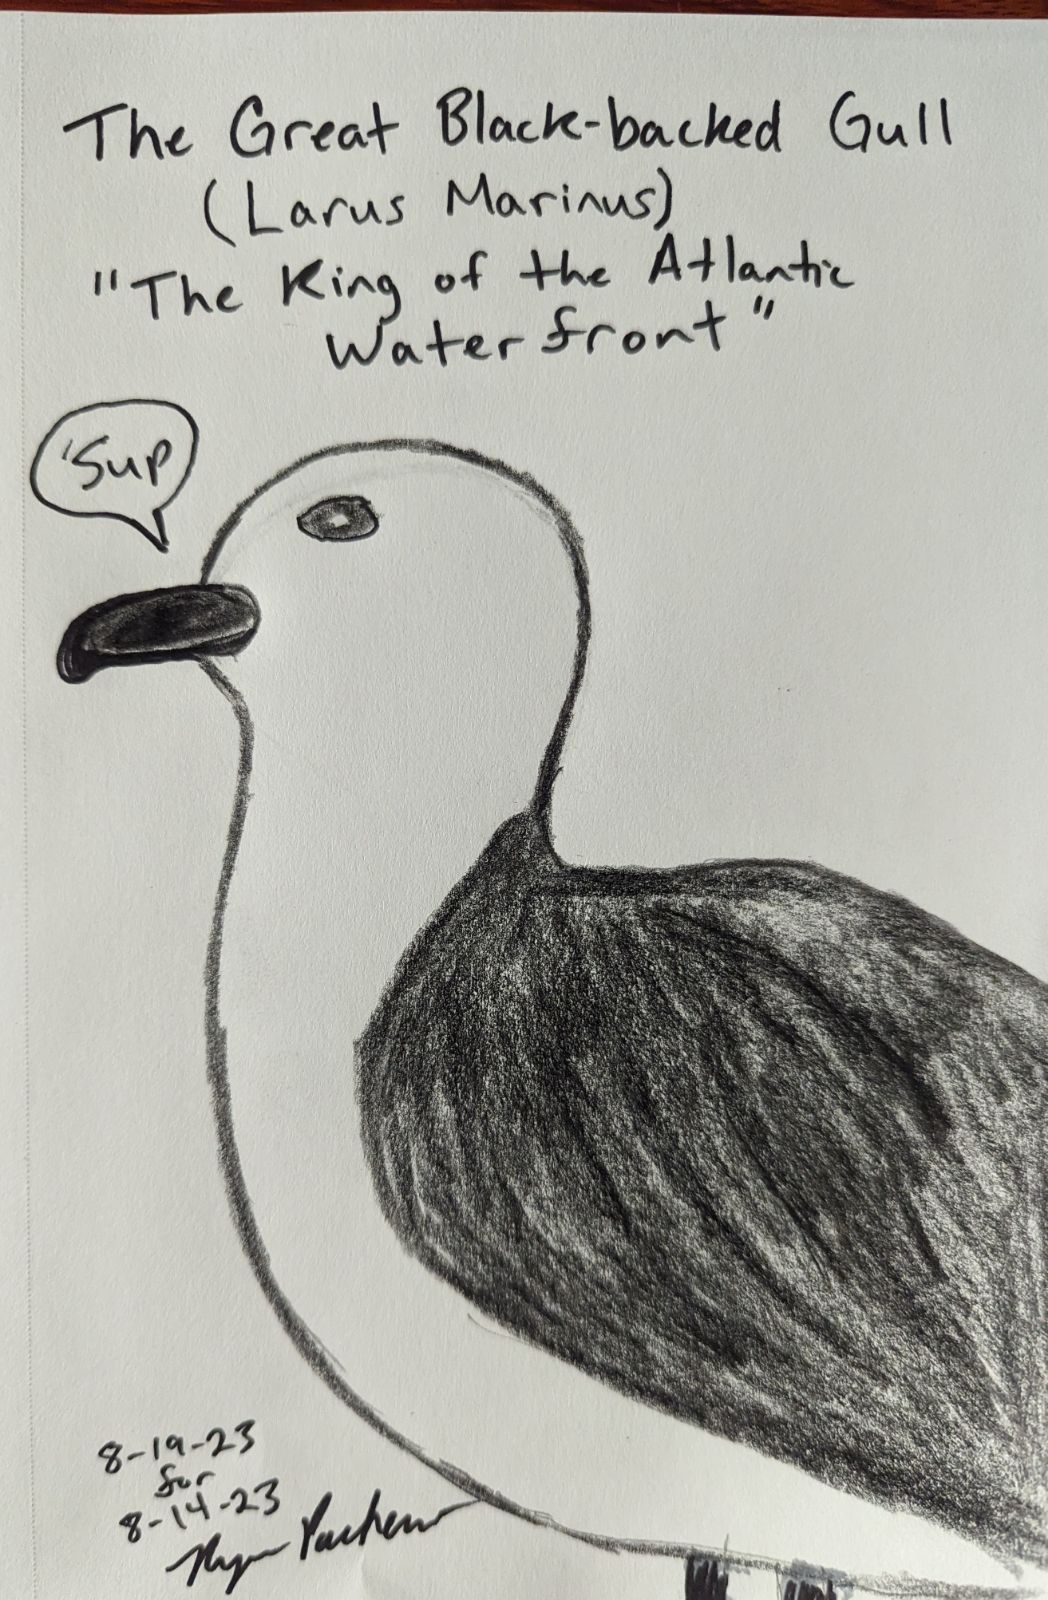 The Great Black-backed Gull
(Larus Marinus)
"The King of the Atlantic
Waterfront"
'Sup
8-19-23
for
8-14-23